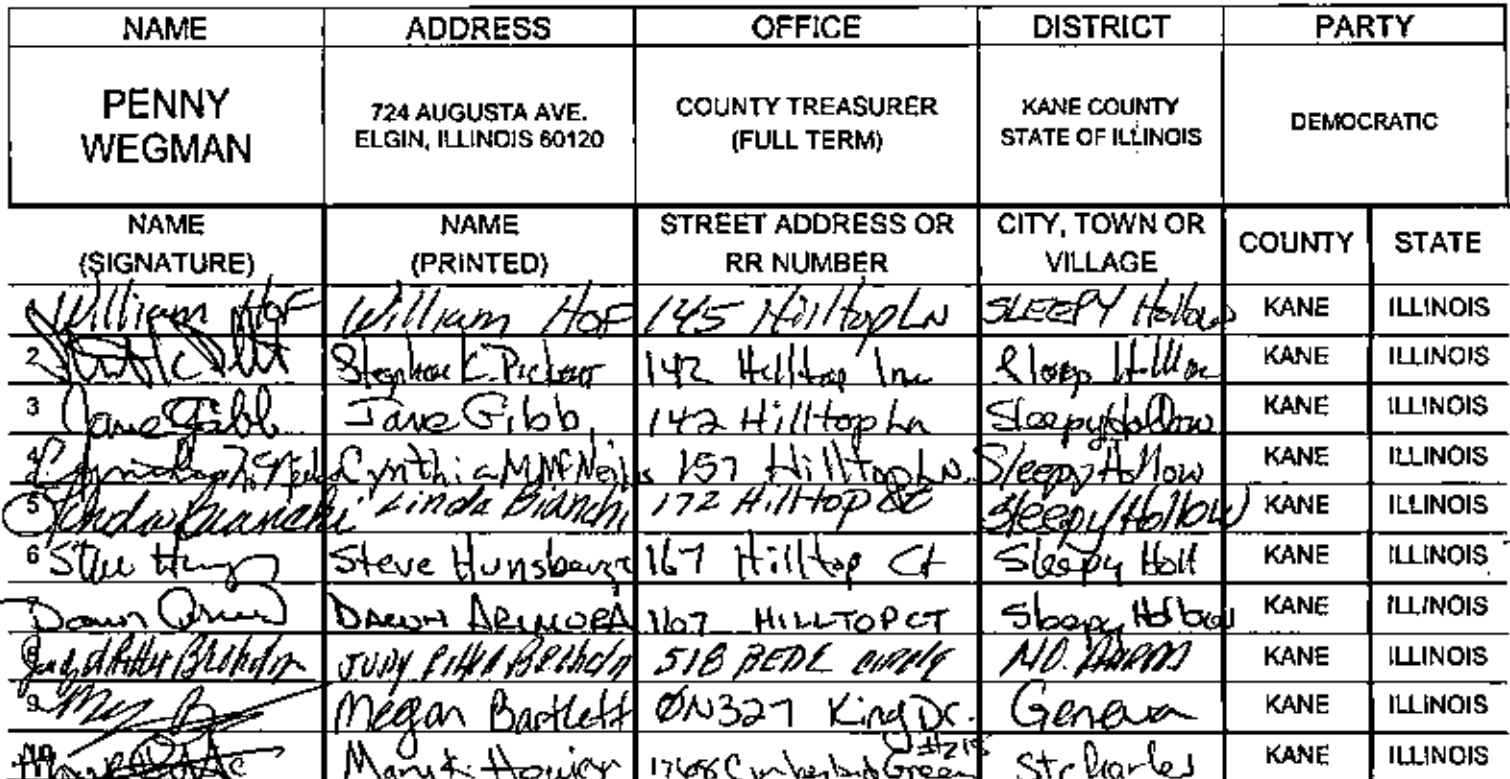 NAME ADDRESS OFFICE DISTRICT PARTY
PENNY WEGMAN 724 AUGUSTA AVE. ELGIN, ILLINOIS 60120 COUNTY TREASURER (FULL TERM) KANE COUNTY STATE OF ILLINOIS DEMOCRATIC
NAME (SIGNATURE) NAME (PRINTED) STREET ADDRESS OR RR NUMBER CITY, TOWN OR VILLAGE COUNTY STATE
William Hof William Hof 145 Hilltop Ln SLEEPY Hollow KANE ILLINOIS
2 142 Hilltop KANE ILLINOIS
3 Jane Gibb Jane Gibb 142 Hilltop Ln Sleepy Hollow KANE ILLINOIS
4 Cynthia M 157 Hilltop Ln. Sleepy Hollow KANE ILLINOIS
5 Linda Bianchi Linda Bianchi 172 Hilltop Sleepy Hollow KANE ILLINOIS
6 Steve Steve 167 Hilltop Ct Sleepy KANE ILLINOIS
7 Dawn DAWN 167 HILLTOP CT Sleepy Hollow KANE ILLINOIS
8 JUDY 518 KANE ILLINOIS
9 Megan Bartlett 0N327 King Dr. Geneva KANE ILLINOIS
10 Green St Charles KANE ILLINOIS